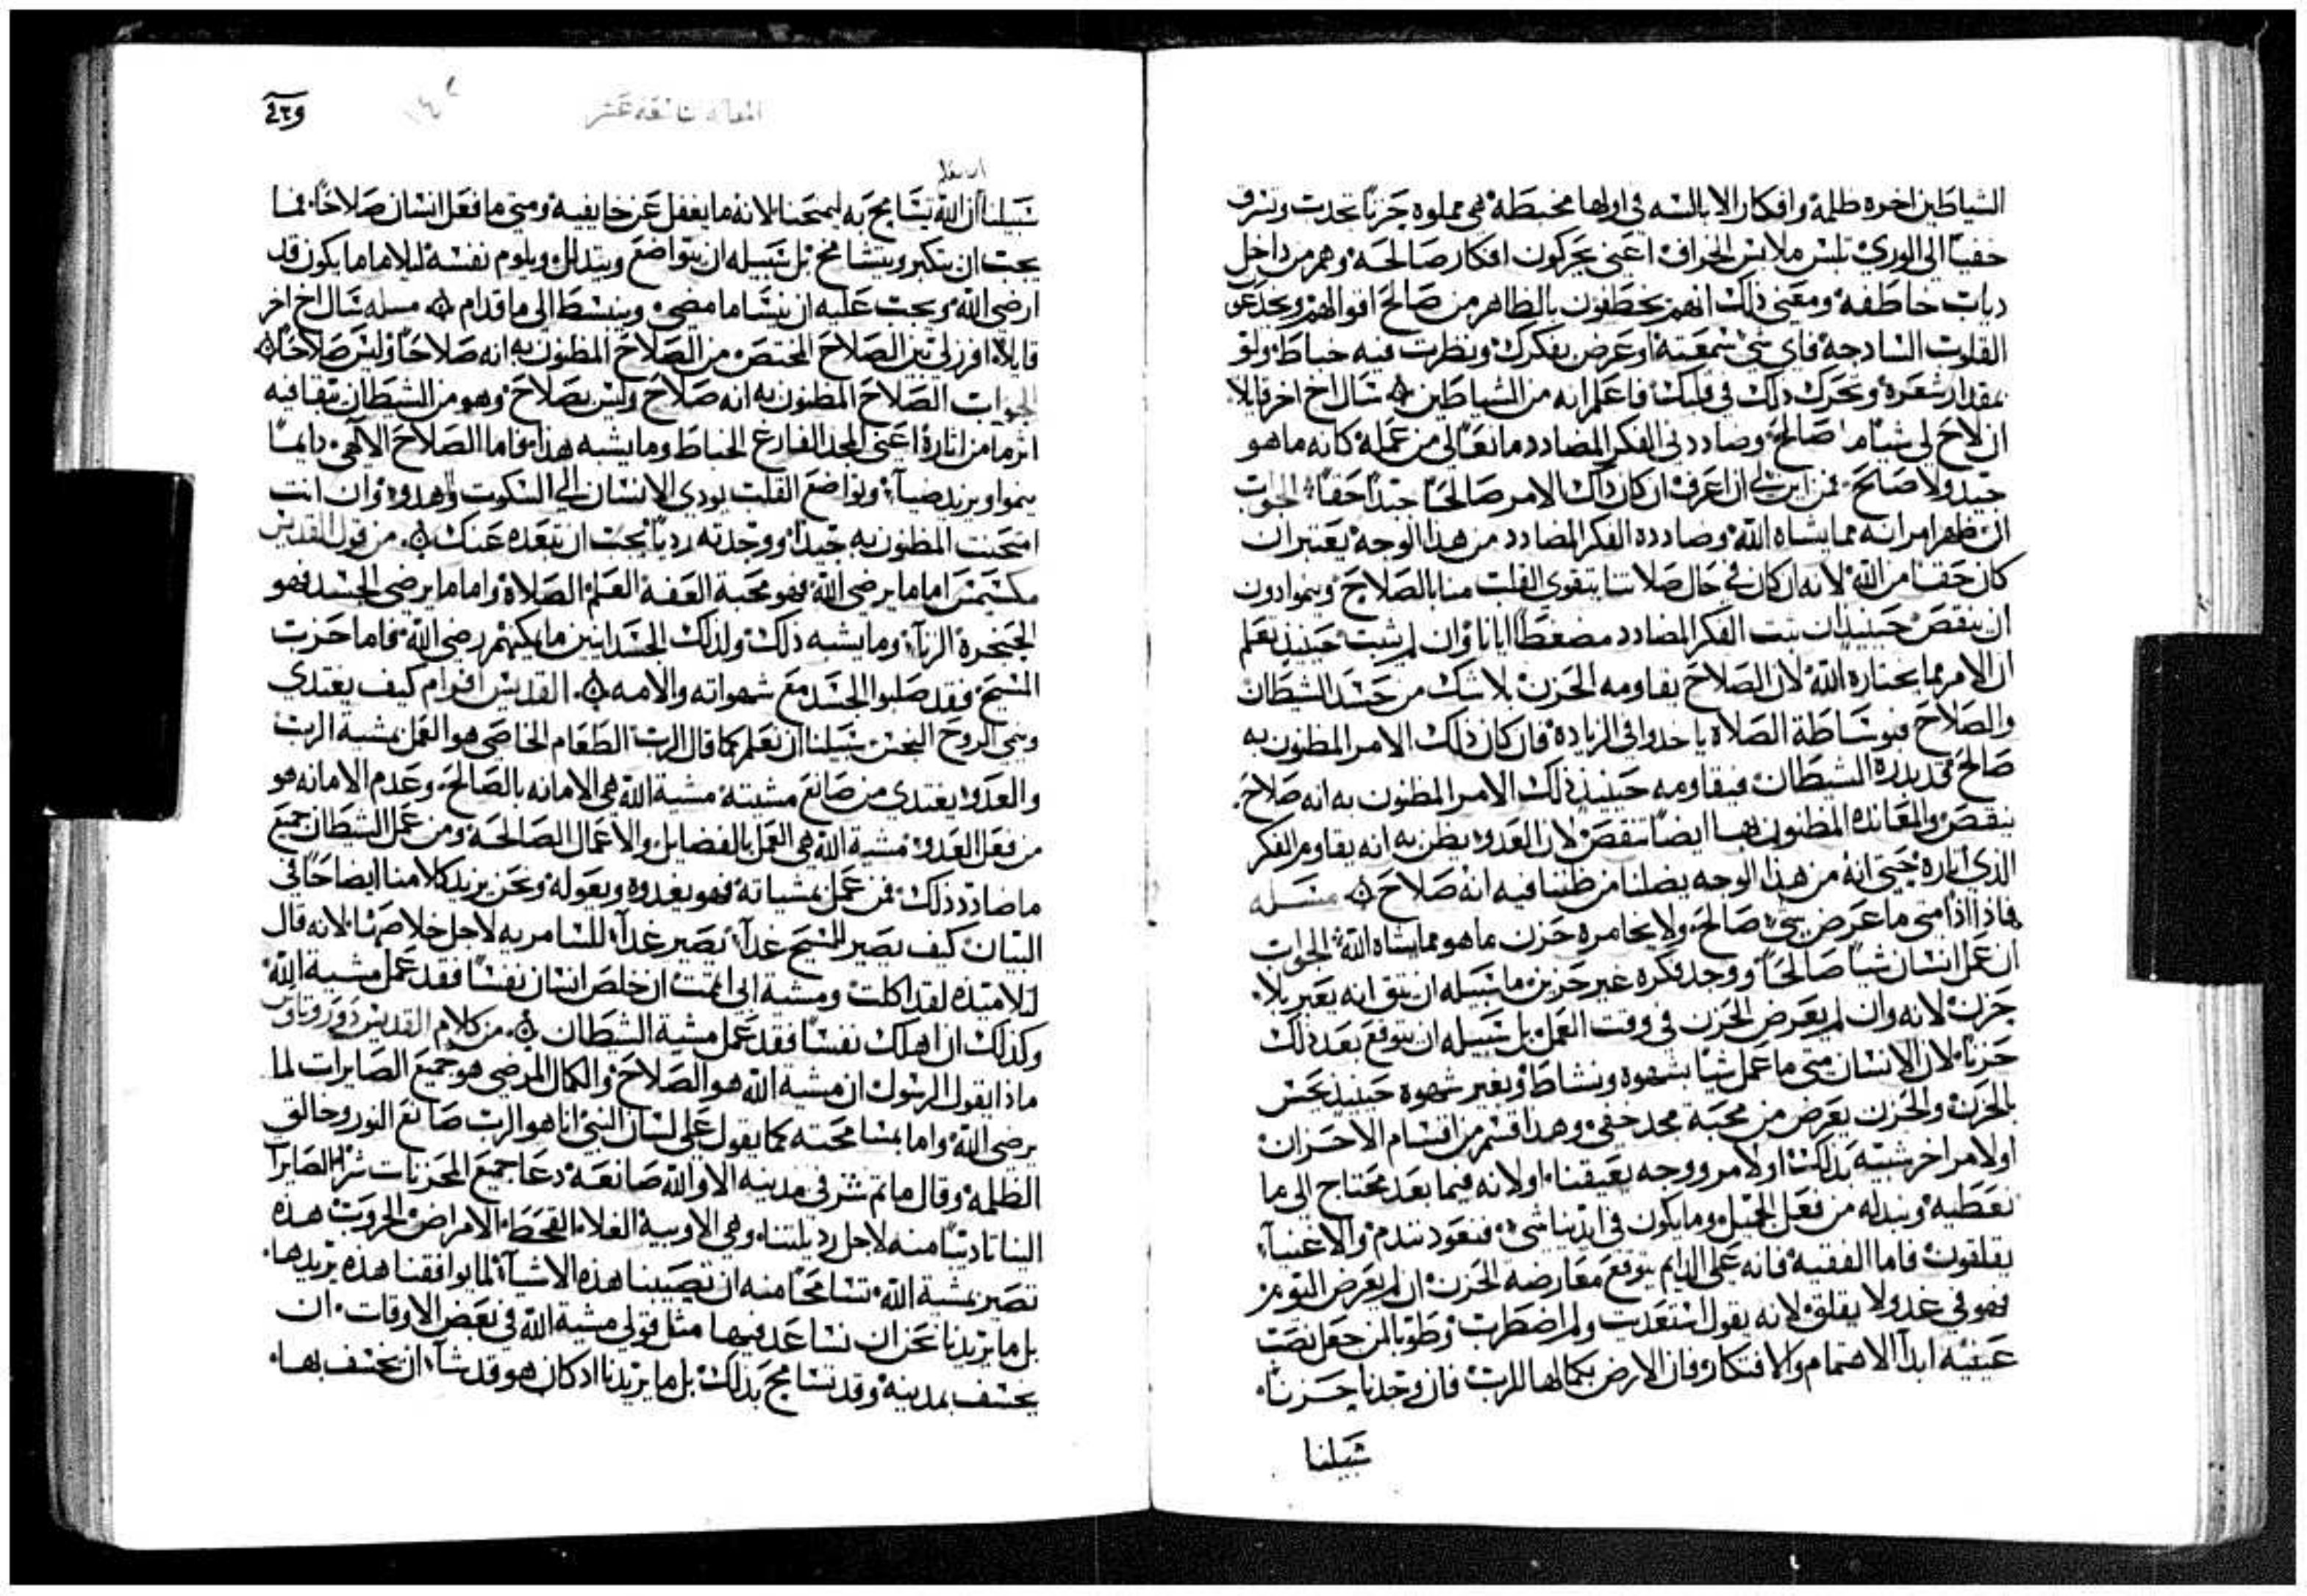 الشياطين اخوه ظلمة وافكار الابالسه في اولها مخبطة هي مملوه حزنا تحدث وتسرق
خفيا الى الوري تلبس ملابس الخراف اعني يحركون افكار صالحه وهم من داخل
دياب خاطفه ومعني ذلك انهم يخطفون بالظاهر من صالح اقوالهم ويخدعون
القلوب السادجه فاي شي سمعته او عرض بفكرك ونظرت فيه خباط ولو
بمقدار شعره وتحرك ذلك في قلبك فاعلم انه من الشياطين سال اخ اخر قايلا
ان لاح لي شيا ما صالح وصاددني الفكر المصادد مانعا لي من عمله كانه ما هو
جيد ولا صالح فمن اين لي ان اعرف ان كان ذلك الامر صالحا جيدا حقا الجواب
ان ظهر امر انه مما يشاه الله وصادده الفكر المصادد من هذا الوجه يعتبر ان
كان حقا من الله لانه ان كان في حال صلاتنا يتقوي القلب منا بالصلاح وينموا دون
ان ينقص حينيذ ان ثبت الفكر المصادد مضغطا ايانا وان لم يثبت حينيذ يعلم
ان الامر مما يختاره الله لان الصلاح يقاومه الحزن بلا شك من حسد الشيطان
والصلاح فبوساطة الصلاه ياخدوا في الزياده فان كان ذلك الامر المظنون به
صالح قد بدره الشيطان فيقاومه حينيذ ذلك الامر المظنون به انه صلاح
ينقص والمعانده المظنون بها ايضا تنقص لان العدو يظن به انه يقاوم الفكر
الذي اناره حتي انه من هذا الوجه يضلنا من ظننا فيه انه صلاح مسله
فاذا اذا متي ما عرض شي صالح ولا يخامره حزن ما هو مما يشاه الله الجواب
ان عمل انسان شيا صالحا ووجد فكره غير حزين ما سبيله ان يثق انه يعبر بلا
حزن لانه وان لم يعرض الحزن في وقت العمل بل سبيله ان يتوقع بعد ذلك
حزنا لان الانسان متي ما عمل شيا بشهوه ونشاط او بغير شهوه حينيذ يحس
بالحزن والحزن يعرض من محبة مجد خفي وهدا قسم من اقسام الاحزان
او لامر اخر شبيه بذلك او لامر ووجه يعيقنا او لانه فيما بعد نحتاج الى ما
نعطيه ونبدله من فعل الجميل وما يكون في ايدينا شي فنعود نندم والاغنيا
يقلقون فاما الفقيه فانه على الدايم يتوقع معارضة الحزن ان لم يعرض اليوم
فهو في غد ولا يقلق لانه يقول استعديت ولم اضطرب وطوبا لمن جعل نصب
عينيه ابدا الاهتمام والافتكار فان الارض بكمالها للرب فان وجدنا حزنا
سبيلنا
٤٣٩
المقاله تاسعه عشر
سبيلنا ان الله يتسامح به ليمتحنا لانه ما يغفل عن خايفيه ومتي ما فعل انسان صلاحا فما
يجب ان يتكبر ويتشامخ بل سبيله ان يتواضع ويتدلل ويلوم نفسه ليلا ما ما يكون قد
ارضي الله ويجب عليه ان ينسا ما مضي وينبسط الى ما قدام مسله سال اخ اخر
قايلا افرز لي بين الصلاح المختص من الصلاح المظنون به انه صلاحا وليس صلاحا
الجواب الصلاح المظنون به انه صلاح وليس بصلاح وهو من الشيطان يبقا فيه
اثر ما من اثاره اعني المجد الفارغ الخباط وما يشبه هذا فاما الصلاح الالهي دايما
ينموا ويزيد ضيا وتواضع القلب يودي الانسان الي السكوت والهدوء وان انت
امتحنت المظنون به جيدا ووجدته رديا يجب ان تبعده عنك من قول القديس
مكسيمس اما ما يرضي الله فهو محبة العفه العلم الصلاه واما ما يرضي الجسد فهو
الحنجره الزنا وما يشبه ذلك ولذلك الجسدانيين ما يمكنهم رضي الله فاما حزب
المسيح فقد صلبوا الجسد مع شهواته والامه القديس افرام كيف يغتدي
وينمي الروح النجس سبيلنا ان نعلم كما قال الرب الطعام الخاصي هو العمل بمشية الرب
والعدو يغتدي من صانع مشيته مشية الله هي الامانه بالصالح وعدم الامانه هو
من فعل العدو مشية الله هي العمل بالفضايل والاعمال الصالحه ومن عمل الشيطان جميع
ما صادد ذلك فمن عمل بمشياته فهو يغدوه ويعوله ونحن نزيد كلامنا ايضاحا في
البيان كيف يصير المسيح غدا يصير غدا للسامريه لاجل خلاصنا لانه قال
لتلاميذه لقد اكلت ومشية ابي اتممت ان خلص انسان نفسا فقد عمل مشية الله
وكذلك ان اهلك نفسا فقد عمل مشية الشيطان من كلام القديس دوروتاوس
ماذا يقول الرسول ان مشية الله هو الصلاح والكمال المرضي هو جميع الصايرات لما
يرضي الله واما بمشا محبته كما يقول على لسان النبي انا هو الرب صانع النور وخالق
الظلمه وقال ما تم شر في مدينه الا والله صانعه دعا جميع المحزنات شر الصايرات
الينا تاديبا منه لاجل رديلتنا وهي الاوبيه الغلاء القحط الامراض الحروب هذه
تصير بمشية الله تسامحا منه ان تصيبنا هذه الاشيا لما يوافقنا هذه يريدها
بل ما يريدنا نحن ان نساعد فيها مثل قولي مشية الله في بعض الاوقات ان
يخسف بمدينه وقد تسامح بذلك بل ما يريدنا اد كان هو قد شا ان يخسف بها